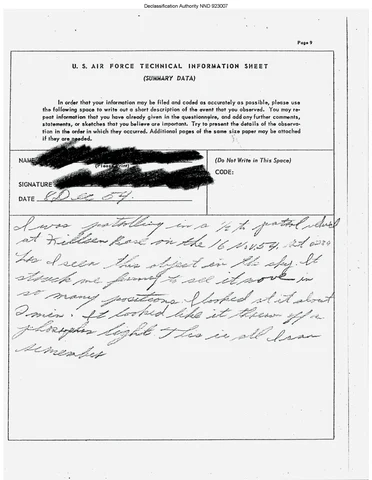 Declassification Authority NND 923007
Page 9
U. S. AIR FORCE TECHNICAL INFORMATION SHEET
(SUMMARY DATA)
In order that your information may be filed and coded as accurately as possible, please use
the following space to write out a short description of the event that you observed. You may re-
peat information that you have already given in the questionnaire, and add any further comments,
statements, or sketches that you believe are important. Try to present the details of the observa-
tion in the order in which they occurred. Additional pages of the same size paper may be attached
if they are needed.
NAME
(Please Print)
(Do Not Write in This Space)
CODE:
SIGNATURE
DATE 8 Dec 54.
I was patrolling in a 1/2 tn patrol
at Base on the 16 Nov 54. at
hrs I seen this object in the sky. It
struck me funny to see it move in
so many positions I looked at it about
2 min. It looked like it threw off a
light This is all I can
remember